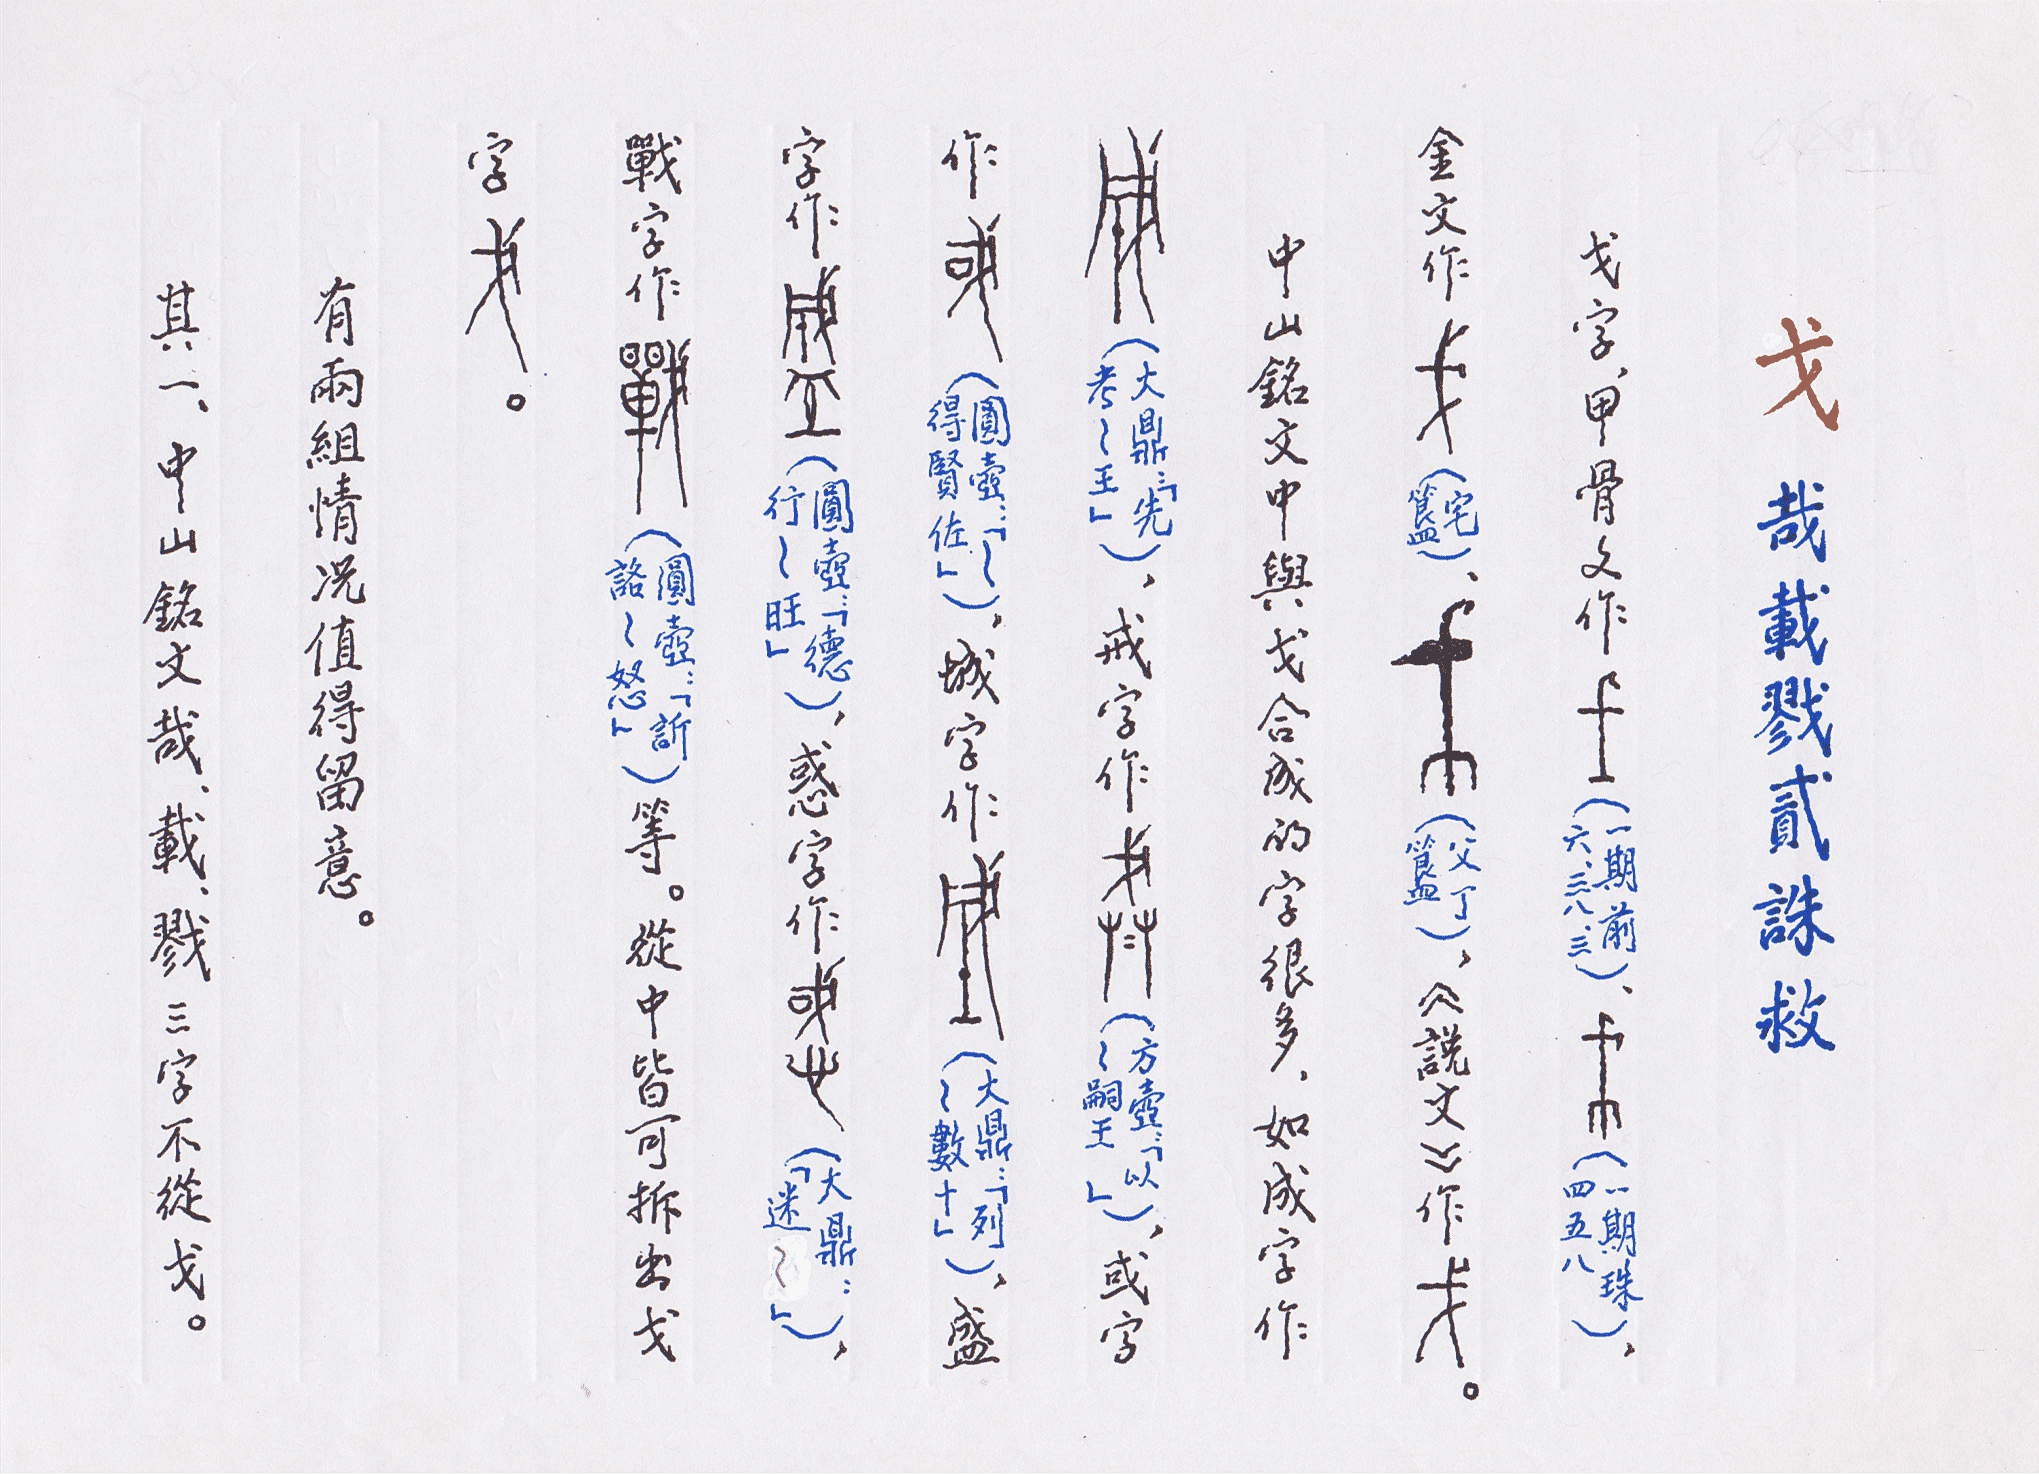 戈 哉載戮貳誅救
戈字，甲骨文作（一期前六、三八、三）、（一期珠四五八），
金文作（宅簋）、（父丁簋），《説文》作。
中山銘文中與戈合成的字很多，如成字作
（大鼎：「先考～王」），戒字作（方壺：「以～嗣王」），或字
作（圓壺：「～得賢佐」），城字作（大鼎：「列～數十」），盛
字作（圓壺：「德行～旺」），惑字作（大鼎：「迷～」），
戰字作（圓壺：「訢詻～怒」）等。從中皆可拆出戈
字。
有兩組情况值得留意。
其一、中山銘文哉、載、戮三字不從戈。